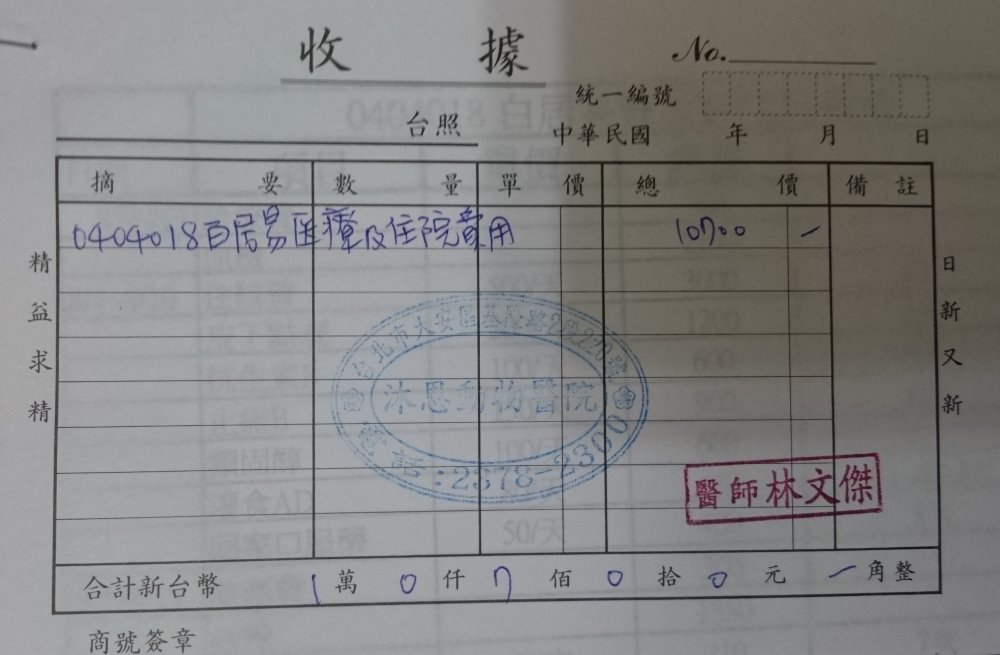 收據
No.
統一編號
台照
中華民國 年 月 日
摘要 數量 單價 總價 備註
0404018白居易医療及住院費用 10700 -
精益求精
日新又新
台北市大安區基隆路2段270號
沐恩動物醫院
電話:2378-2300
醫師林文傑
合計新台幣 1萬0仟7佰0拾0元-角整
商號簽章